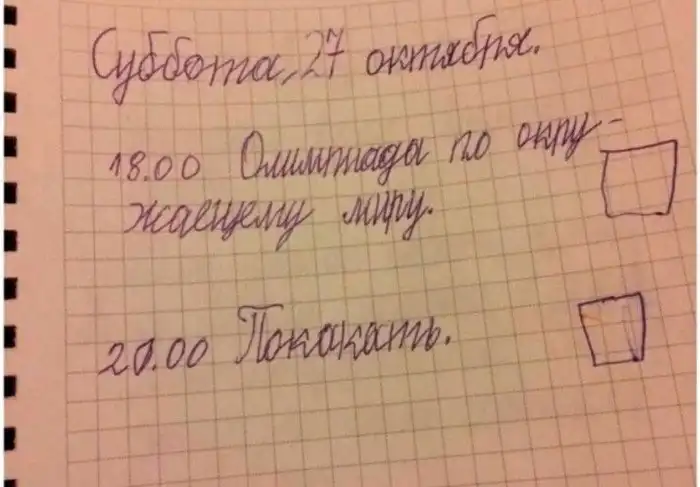 Суббота, 27 октября.
18.00 Олимпиада по окру-
жаещему миру.
20.00 Покакать.